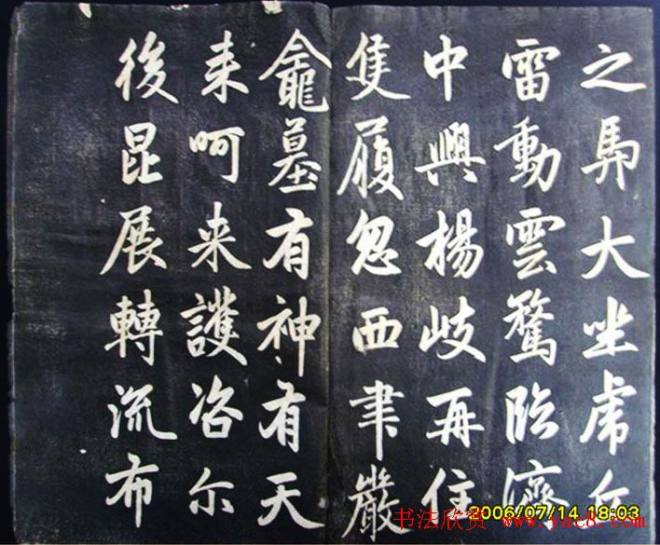 之馬大坐虎丘
雷動雲騖臨濟
中興楊歧再住
隻履忽西聿嚴
龕墓有神有天
来呵来護咨尔
後昆展轉流布
2006/07/14 18:03
书法欣赏 www.yac8.com